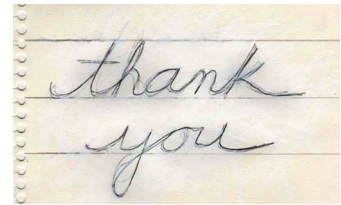 thank
you